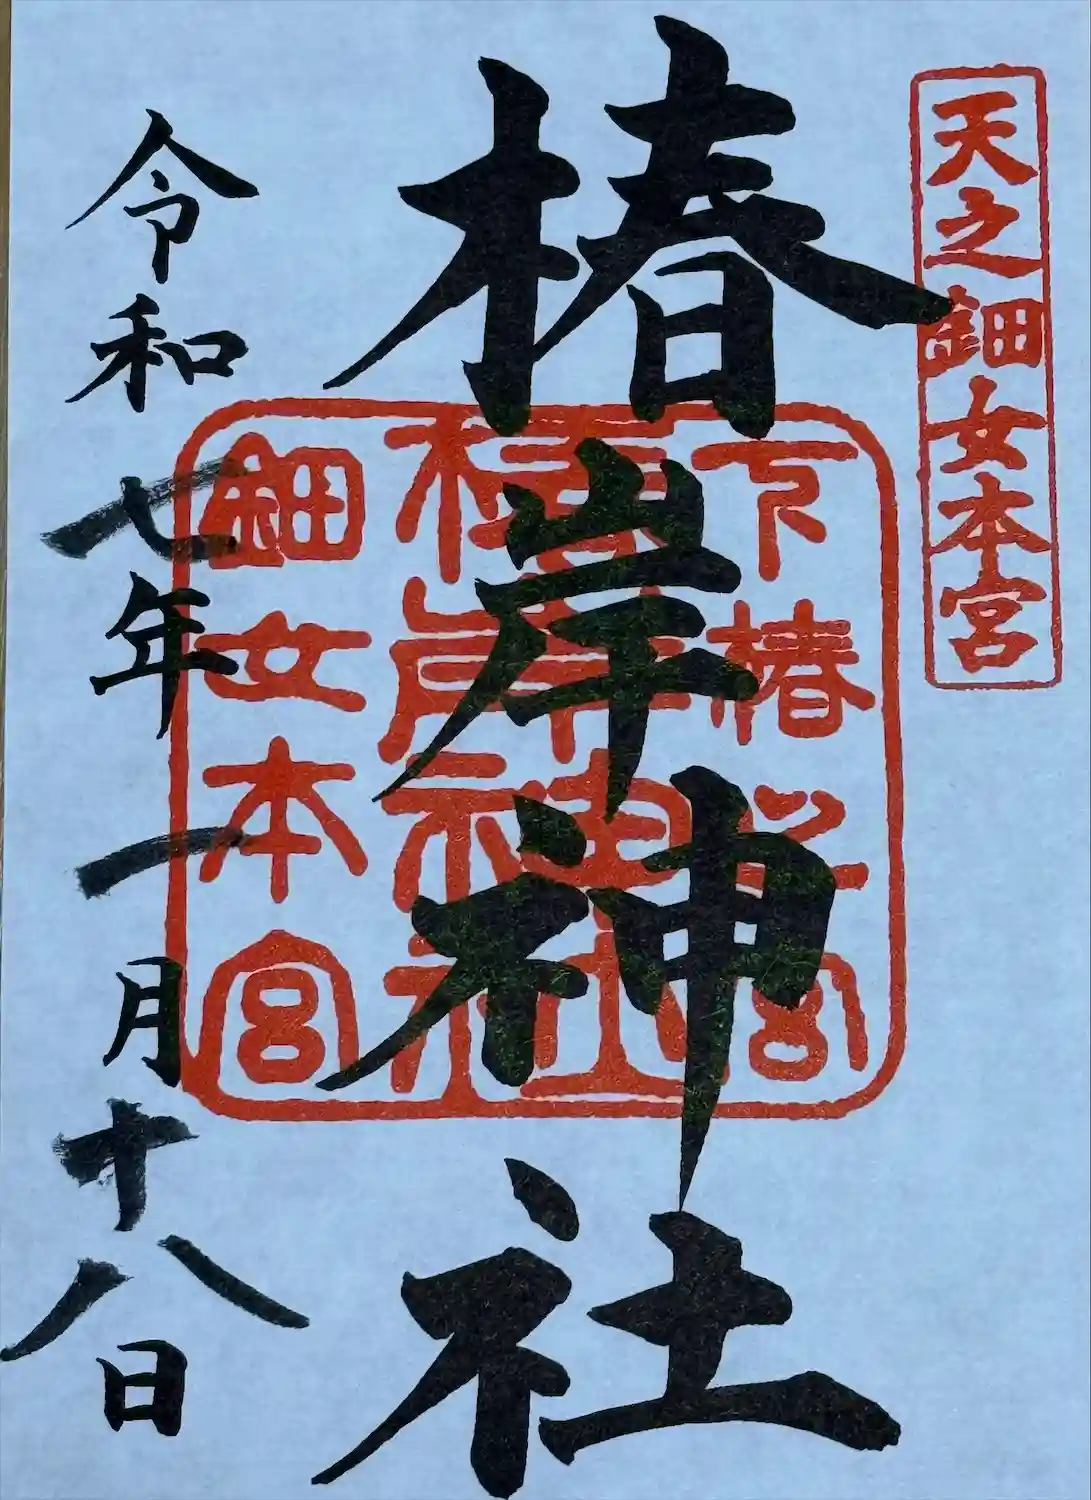 天之鈿女本宮
椿岸神社
下椿宮
椿岸神社
鈿女本宮
令和七年一月十八日